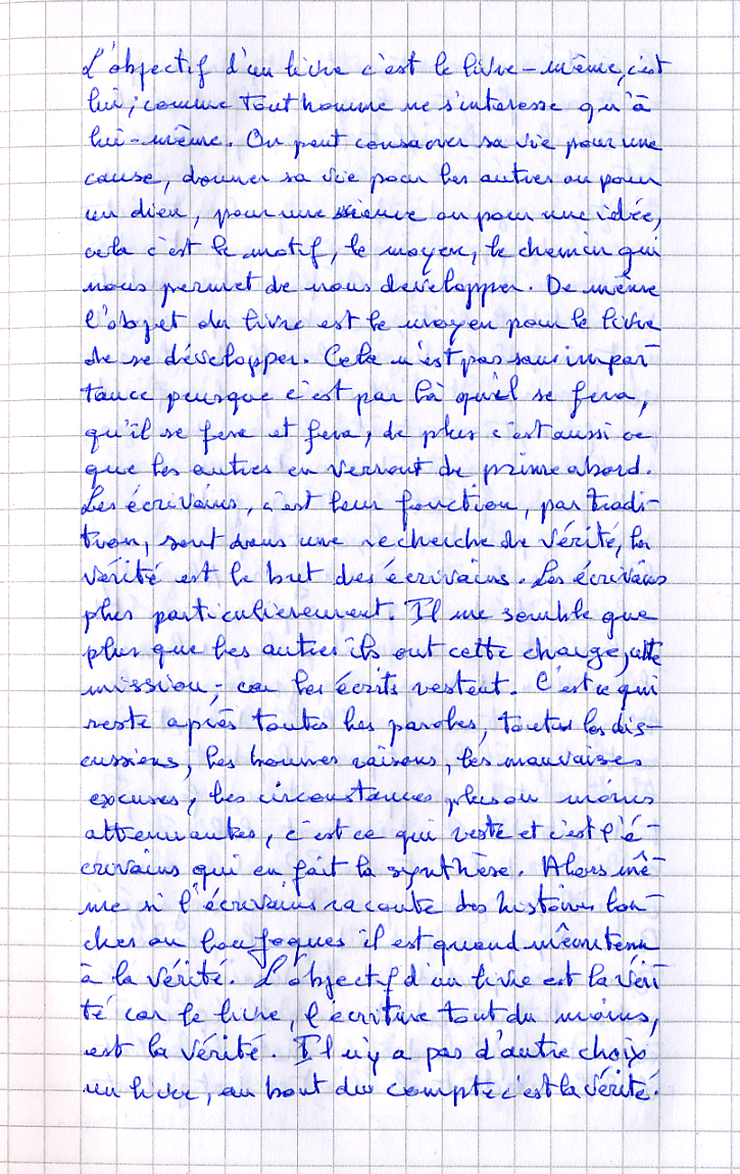 L'objectif d'un livre c'est le livre-même, c'est
lui ; comme tout homme ne s'interesse qu'à
lui-même. On peut consacrer sa vie pour une
cause, donner sa vie pour les autres ou pour
un dieu, pour une science ou pour une idée,
cela c'est le motif, le moyen, le chemin qui
nous permet de nous developper. De même
l'objet du livre est le moyen pour le livre
de se développer. Cela n'est pas sans impor-
tance puisque c'est par là qu'il se fera,
qu'il se fera et fera, de plus c'est aussi ce
que les autres en verront de prime abord.
Les écrivains, c'est leur fonction, par tradi-
tion, sont dans une recherche de vérité, la
vérité est le but des écrivains. Les écrivains
plus particulièrement. Il me semble que
plus que les autres ils ont cette charge, cette
mission ; car les écrits restent. C'est ce qui
reste après toutes les paroles, toutes les dis-
cussions, les bonnes raisons, les mauvaises
excuses, les circonstances plus ou moins
attenuantes, c'est ce qui reste et c'est l'é-
crivains qui en fait la synthèse. Alors mê-
me si l'écrivains raconte des histoires lou-
ches ou loufoques il est quand même tenu
à la vérité. L'objectif d'un livre est la véri
té car le livre, l'écriture tout du moins,
est la vérité. Il n'y a pas d'autre choix
un livre, au bout du compte c'est la vérité.